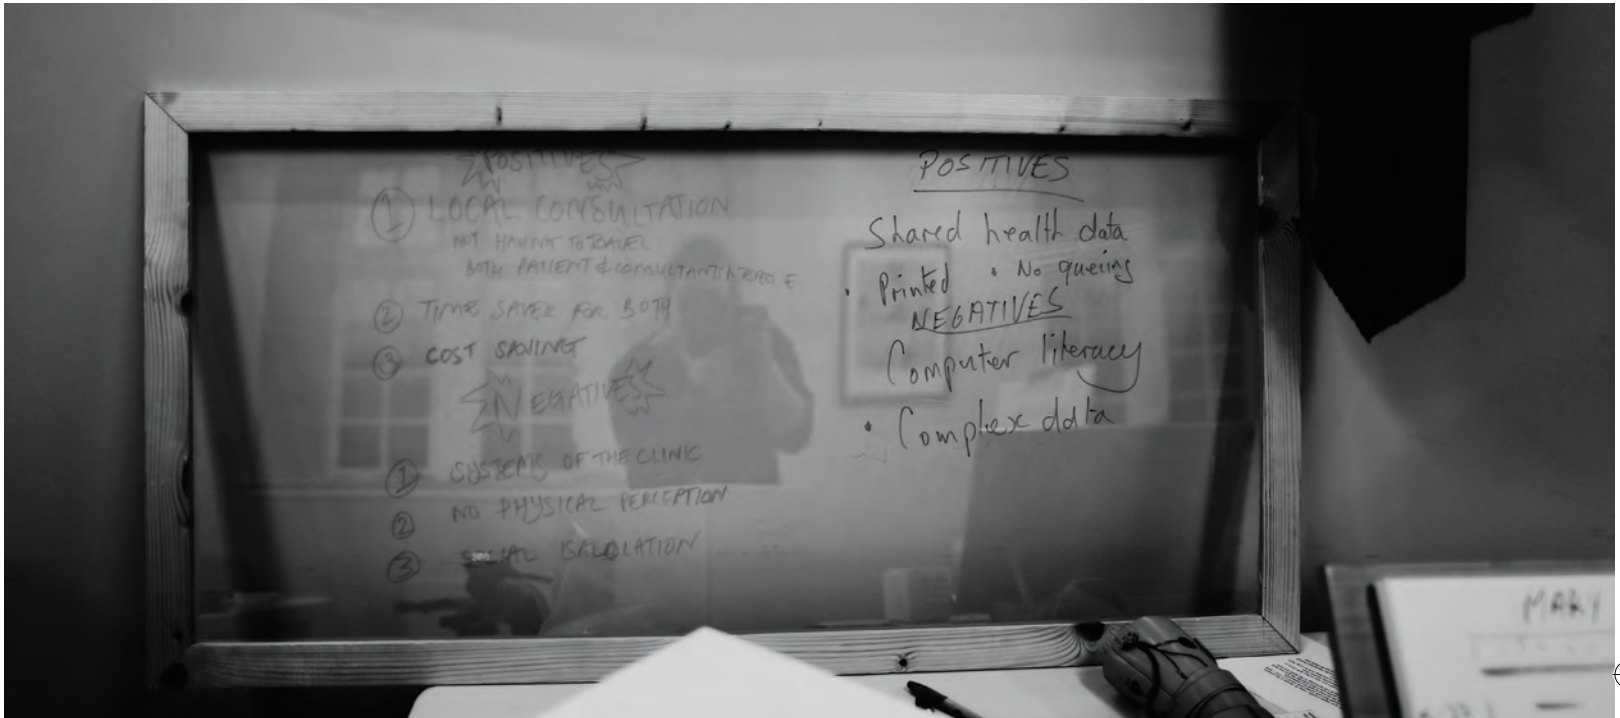 POSITIVES
① LOCAL CONSULTATION
NOT HAVING TO TRAVEL
BOTH PATIENT & CONSULTANT
② TIME SAVER FOR BOTH
③ COST SAVING
NEGATIVES
① SYSTEMS OF THE CLINIC
② NO PHYSICAL PERCEPTION
③ SOCIAL ISALOLATION
POSITIVES
Shared health data
• Printed • No queing
NEGATIVES
Computer literacy
• Complex data
MARY